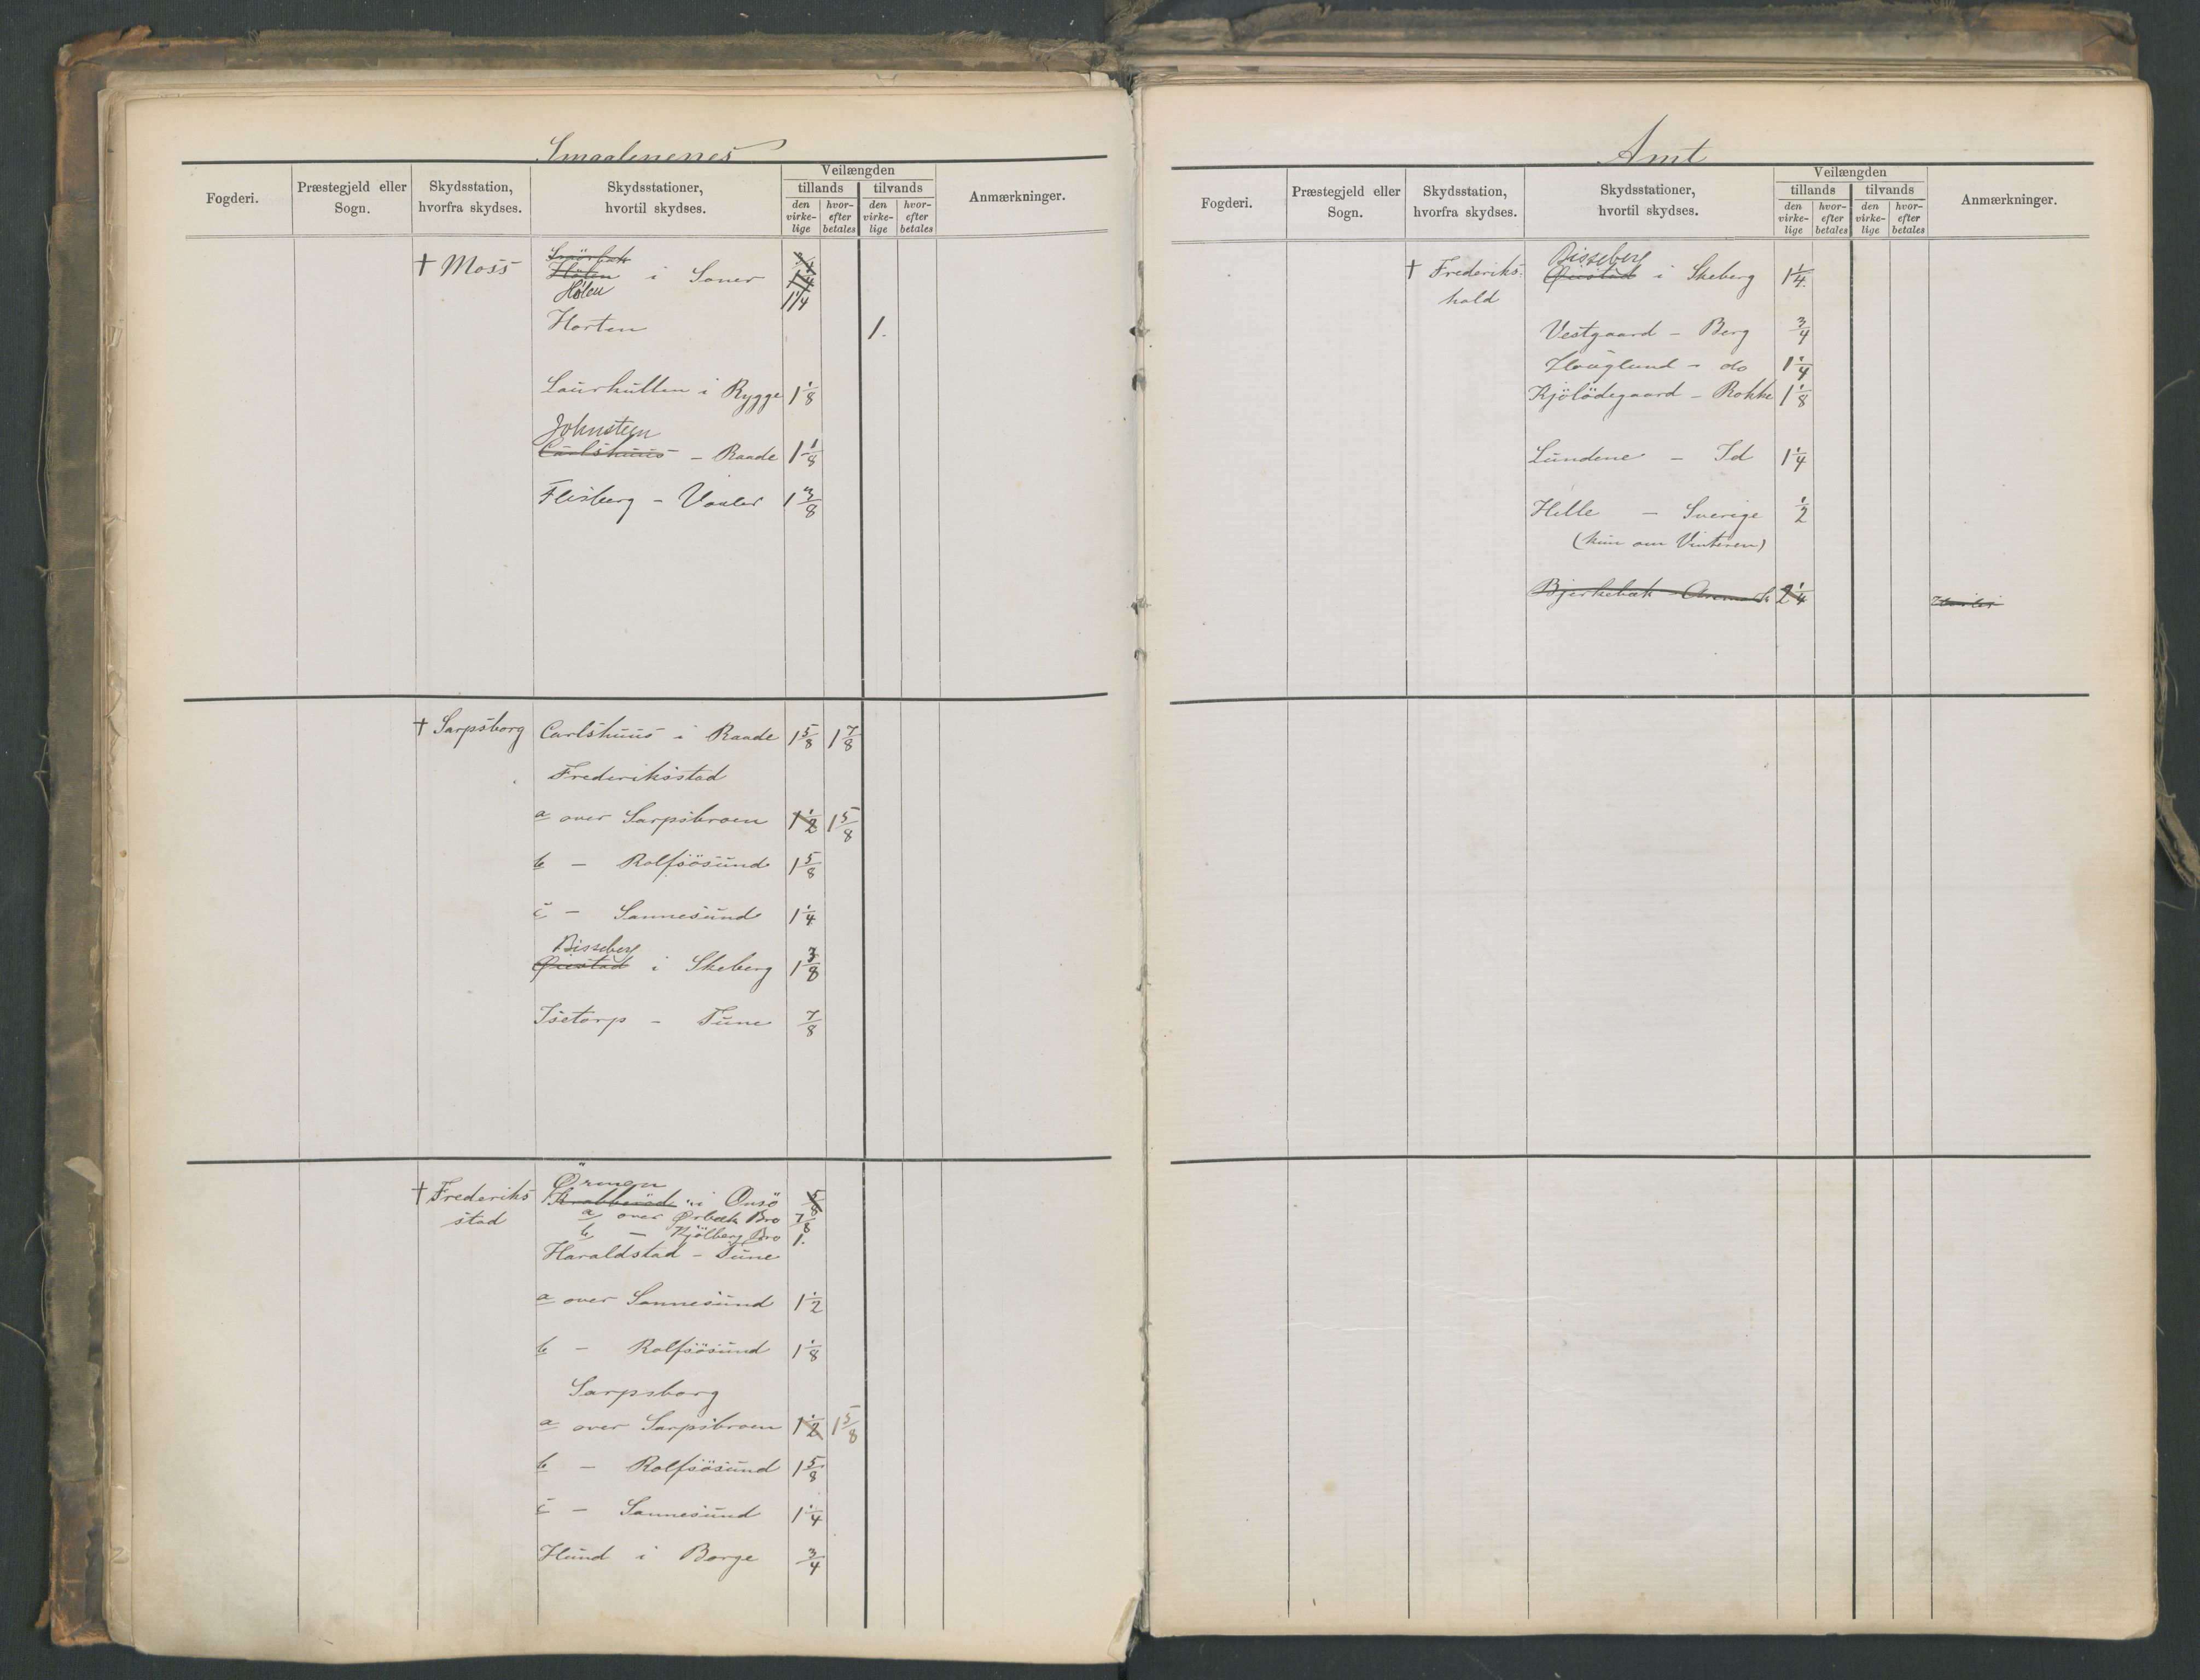 Smaalenenes
Fogderi.
Præstegjeld eller Sogn.
Skydsstation, hvorfra skydses.
Skydsstationer, hvortil skydses.
Veilængden
tillands
tilvands
den virke-lige
hvor-efter betales
den virke-lige
hvor-efter betales
Anmærkninger.
† Moss
Hölen i Soner
Hölen 1 1/4
Horten 1.
Laurkullen i Rygge 1 1/8
Johnsteen
Carlshuus – Raade 1 1/8
Flesberg – Vaaler 1 3/8
† Sarpsborg Carlshuus i Raade 1 5/8 1 7/8
Frederiksstad
a over Sarpsbroen 1 1/2 1 5/8
b – Rolfsösund 1 5/8
c – Sannesund 1 1/4
Bisseberg
Øiestad i Skeberg 1 3/8
Isetorp – Tune 7/8
† Frederiks
stad
Ørmen
Krabberöd i Onsö 5/8
a over Ørbæk Bro 7/8
b – Kjölberg Bro 1.
Haraldstad – Tune
a over Sannesund 1 1/2
b – Rolfsösund 1 1/8
Sarpsborg
a over Sarpsbroen 1 1/2 1 5/8
b – Rolfsösund 1 5/8
c – Sannesund 1 1/4
Hund i Borge 3/4
Amt
Fogderi.
Præstegjeld eller Sogn.
Skydsstation, hvorfra skydses.
Skydsstationer, hvortil skydses.
Veilængden
tillands
tilvands
den virke-lige
hvor-efter betales
den virke-lige
hvor-efter betales
Anmærkninger.
† Frederiks-
hald
Bisseberg
Øiestad i Skeberg 1 1/4
Vestgaard – Berg 3/4
Houglund – do 1 1/4
Kjölödegaard – Rokke 1 1/8
Lundene – Id 1 1/4
Helle – Sverige 1/2
(kun om Vinteren)
Bjerkebæk – Aremark 2 1/4